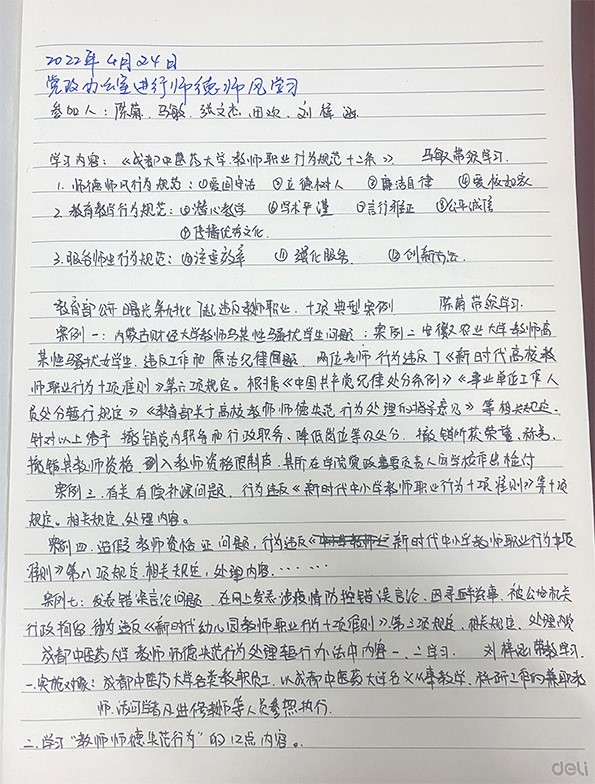 2022年4月24日
党政办公室进行师德师风学习
参加人：陈萍、马敏、张文杰、田欢、刘梓
学习内容：《成都中医药大学教师职业行为规范十二条》 马敏带领学习.
1. 师德师风行为规范：①爱国守法 ②立德树人 ③廉洁自律 ④爱校如家
2. 教育教学行为规范：⑤潜心教学 ⑥学术严谨 ⑦言行雅正 ⑧公平诚信
⑨传播优秀文化.
3.服务师生行为规范：⑩注重效率 ⑪强化服务. ⑫创新方法.
教育部公开曝光第 批7起违反教师职业、十项典型案例 陈萍带领学习.
案例一：内蒙古财经大学教师冯某性骚扰学生问题；案例二安徽农业大学教师高
某性骚扰女学生、违反工作和廉洁纪律问题. 两位老师行为违反了《新时代高校教
师职业行为十项准则》第六项规定。根据《中国共产党纪律处分条例》《事业单位工作人
员处分暂行规定》《教育部关于高校教师师德失范行为处理的指导意见》等相关规定.
针对以上给予 撤销党内职务和行政职务、降低岗位等级处分. 撤销所获荣誉、称号、
撤销其教师资格、列入教师资格限制库.其所在学院党政主要负责人向学校作出检讨
案例三、有关有偿补课问题、行为违反《新时代中小学教师职业行为十项准则》第十项
规定。相关规定、处理内容。
案例四.造假教师资格证问题,行为违反《新时代中小学教师职业行为十项
准则》第八项规定.相关规定,处理内容.……
案例七:发表错误言论问题、在网上发表涉疫情防控错误言论、因寻衅滋事、被公安机关
行政拘留.行为违反《新时代幼儿园教师职业行为十项准则》第三项规定、相关规定、处理内容
成都中医药大学教师师德失范行为处理暂行办法中内容一、二学习. 刘梓 带教学习.
一.实施对象:成都中医药大学各类教职员工.以成都中医药大学名义从事教学、科研工作的兼职教
师.访问学者及进修教师等人员参照执行.
二.学习"教师师德失范行为"的12点内容。.
deli